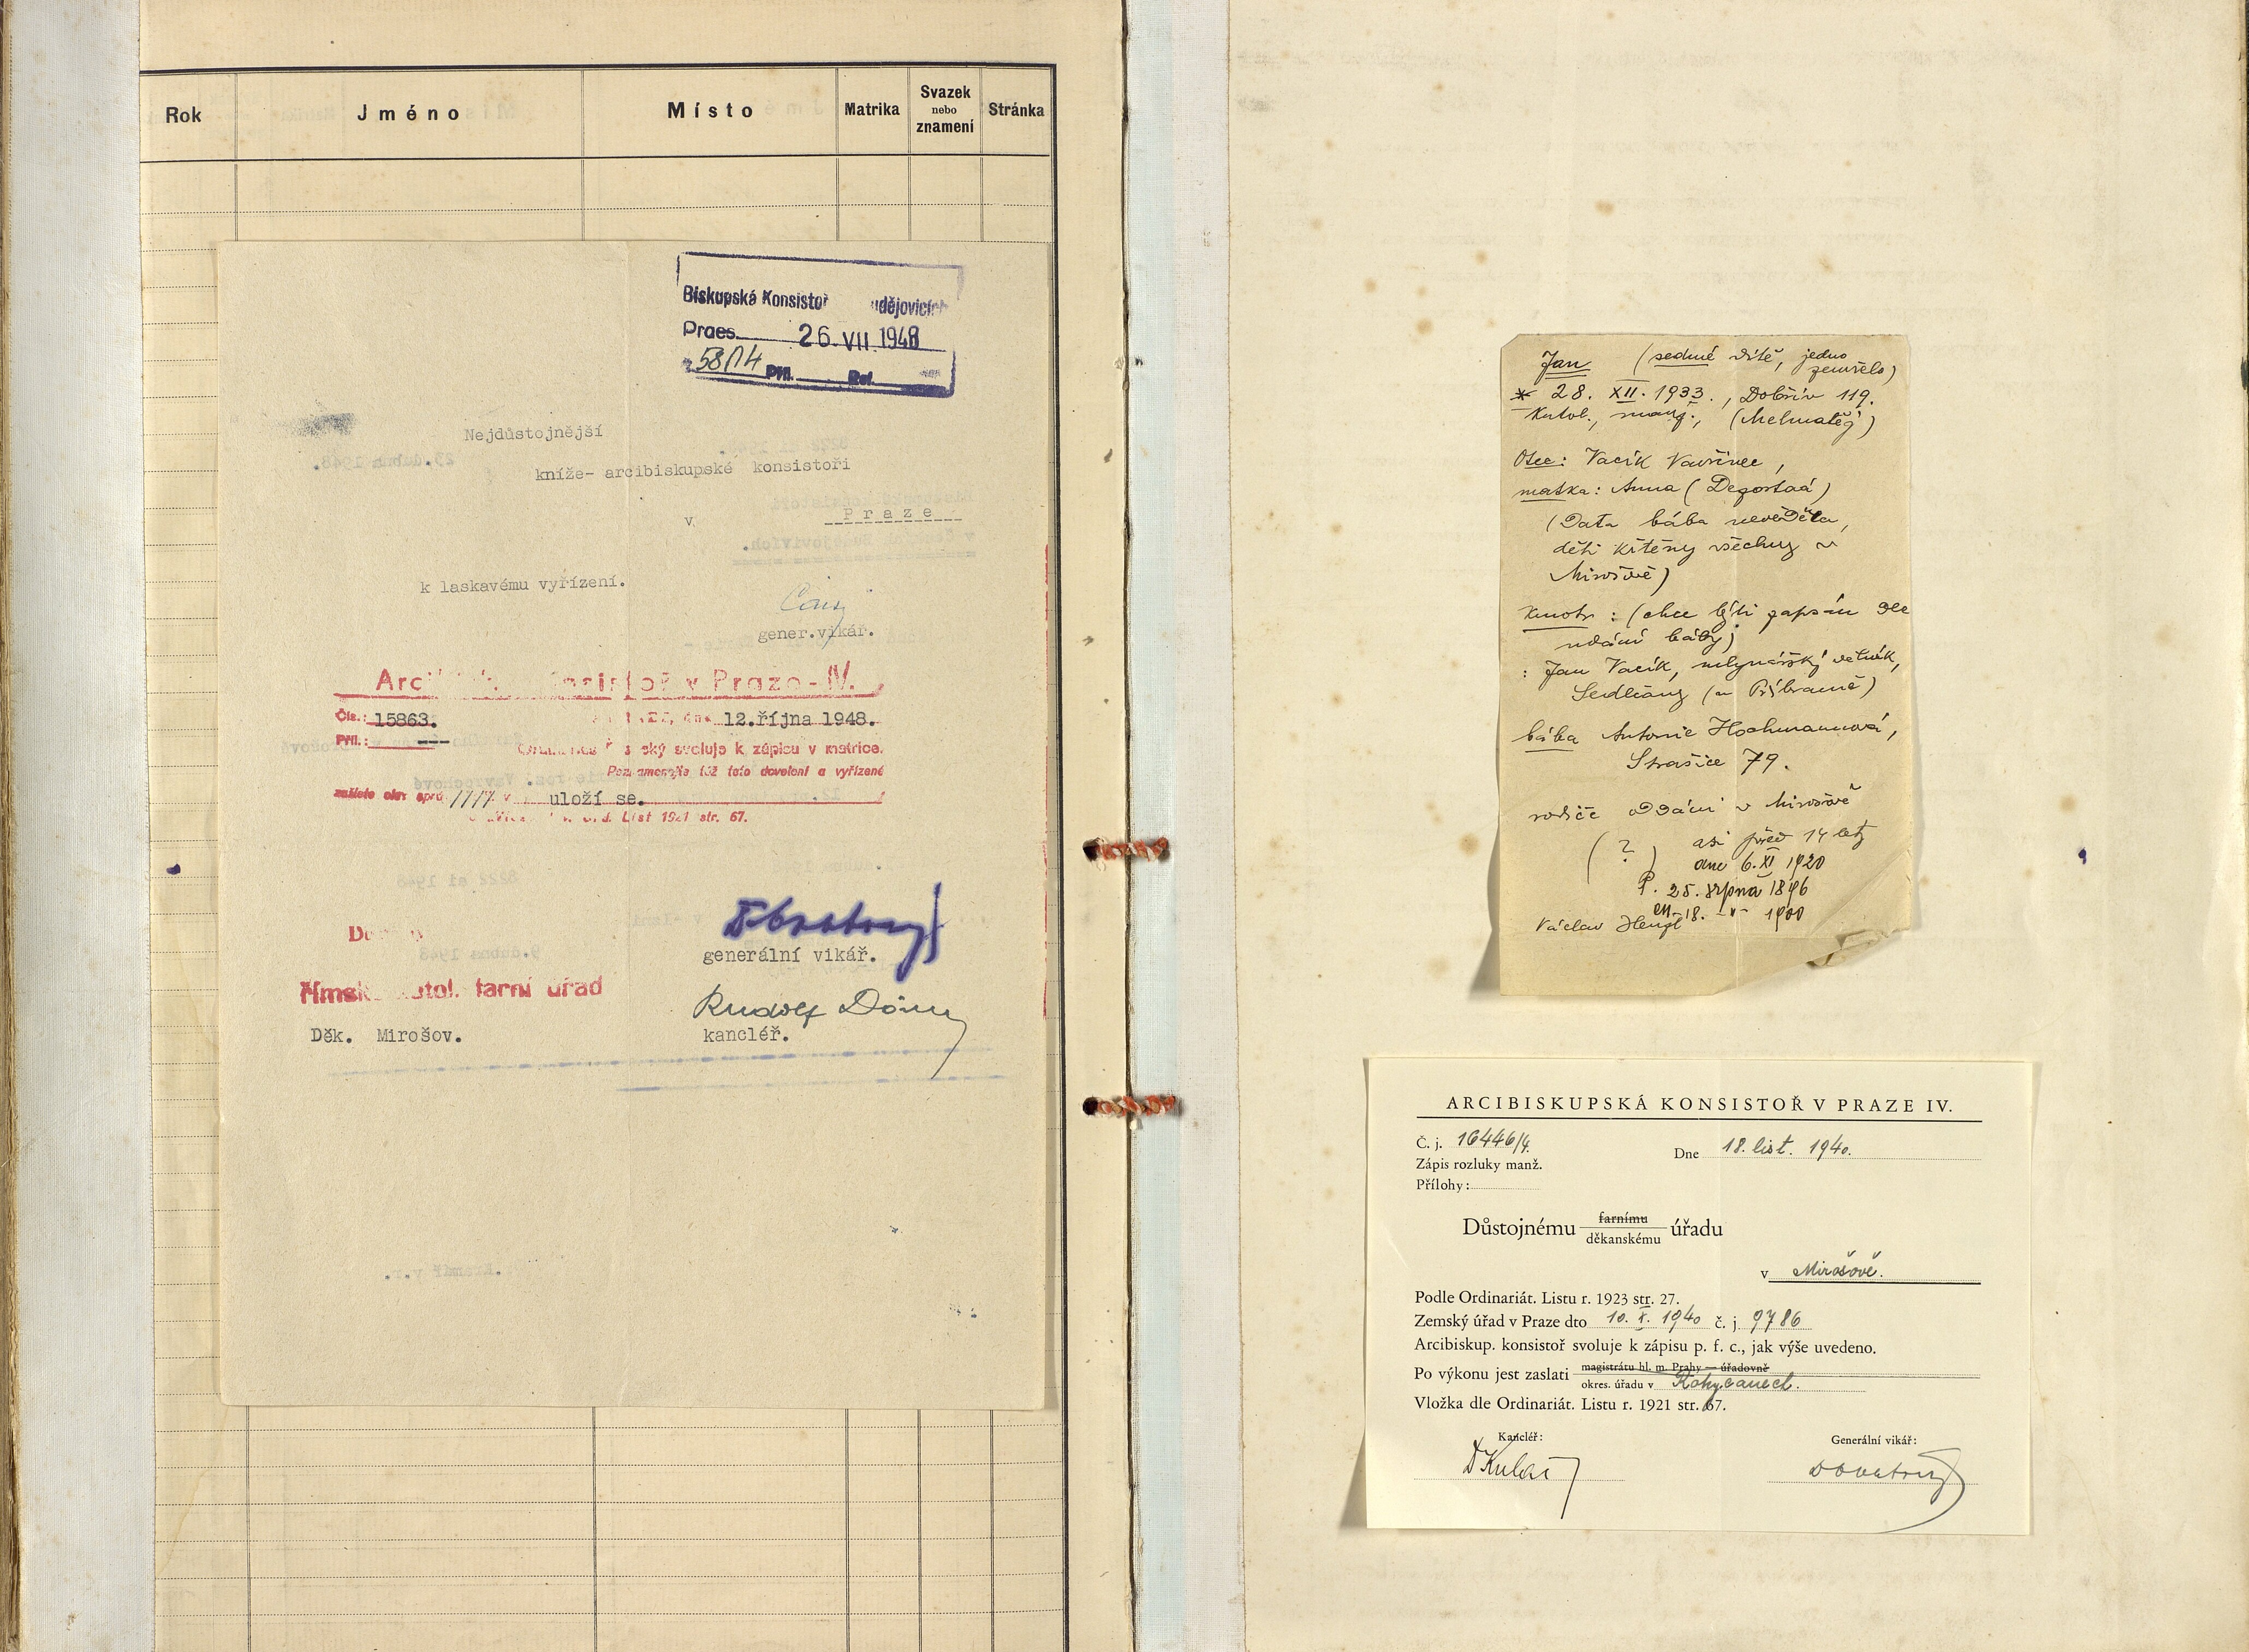 Rok
Jméno
Místo
Matrika
Svazek
nebo
znamení
Stránka
Biskupská Konsistoř udějovicích
Praes. 26. VII. 1948
Příl. Ref.
Nejdůstojnější
kníže- arcibiskupské konsistoři
v Praze
k laskavému vyřízení.
gener.vikář.
Arci Konsistoř v Praze - IV.
Čís.: 15863. 12.října 1948.
Příl.: ---
svoluje k zápisu v matrice.
Poznamenejte též toto dovolení a vyřízené
zašlete okr. uloží se.
List 1921 str. 67.
generální vikář.
Římsk. katol. farní úřad
Rudolf
Děk. Mirošov.
kancléř.
Jan (sedmé dítě, jedno
zemřelo)
* 28. XII. 1933., Dobřív 119.
Katol., manž.,
Otec: Vacík Vavřinec,
matka: Anna
(Data bába nevěděla,
děti křtěny všechny v
Mirošově)
Kmotr: (chce býti zapsán dle
udání báby)
: Jan Vacík, mlynářský dělník,
Sedlčany (u Příbramě)
bába Antonie Hochmannová,
Strašice 79.
rodiče oddáni v Mirošově
(?) asi před 14 lety
dne 6. XI 1920
25. srpna 1896
18. -"- 1900
Václav Hengl
ARCIBISKUPSKÁ KONSISTOŘ V PRAZE IV.
Č. j. 16446/4.
Dne 18. list. 1940.
Zápis rozluky manž.
Přílohy:
Důstojnému farnímu děkanskému úřadu
v Mirošově.
Podle Ordinariát. Listu r. 1923 str. 27.
Zemský úřad v Praze dto 10. X. 1940 č. j. 9786
Arcibiskup. konsistoř svoluje k zápisu p. f. c., jak výše uvedeno.
Po výkonu jest zaslati magistrátu hl. m. Prahy — úřadovně
okres. úřadu v Rokycanech.
Vložka dle Ordinariát. Listu r. 1921 str. 67.
Kancléř:
Generální vikář: